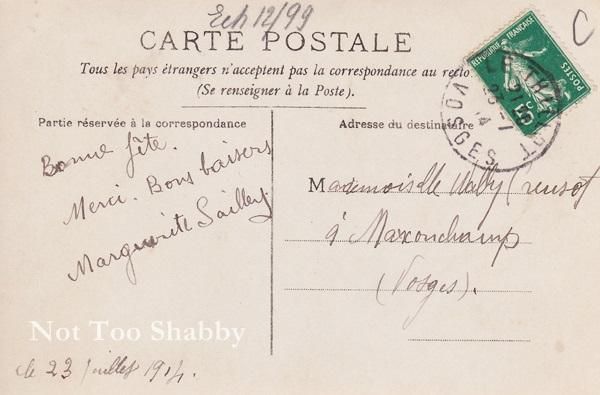 Ech 12/99
C
CARTE POSTALE
Tous les pays étrangers n'acceptent pas la correspondance au recto.
(Se renseigner à la Poste).
REPUBLIQUE FRANÇAISE
POSTES
LE THILLOT
23-7
14
VOSGES
Partie réservée à la correspondance
Adresse du destinataire
Bonne fête.
Merci. Bons baisers
Marguerite Sailley
Mademoiselle
à Maxonchamp
(Vosges).
Not Too Shabby
le 23 juillet 1914.